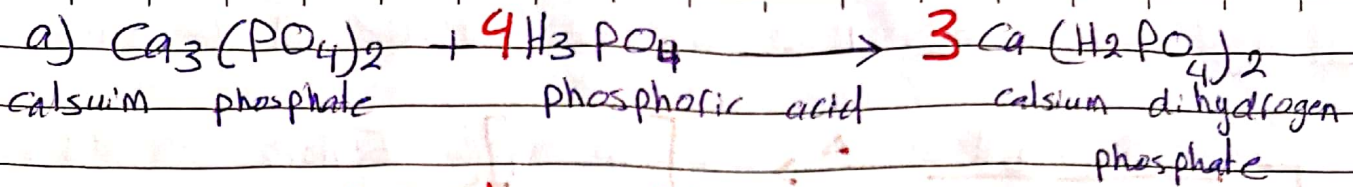 a) Ca3(PO4)2 + 4H3PO4 → 3 Ca(H2PO4)2
calsuim phosphate phosphoric acid calsium dihydrogen
phosphate